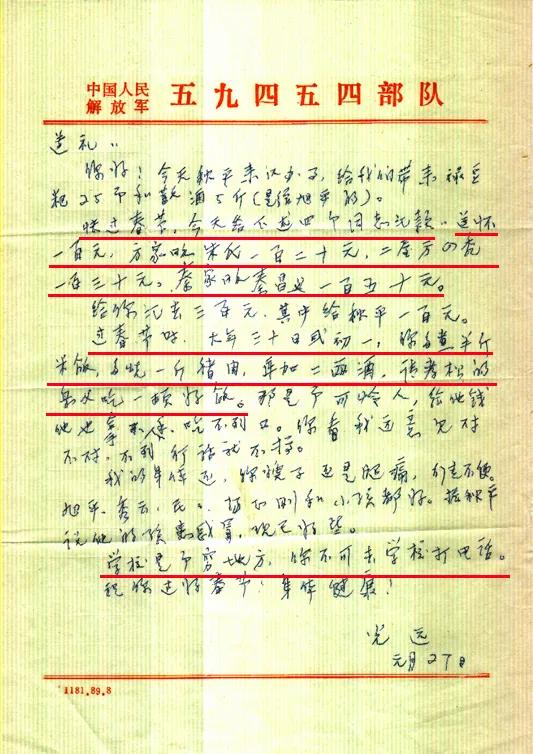 中国人民
解放军 五九四五四部队
送礼：
你好！今天秋平来汉办子，给我们带来绿豆
粑25节和散酒5斤（是给旭平的）。
快过春节，今天给下述四个同志汇款：送怀
一百元，方家 宋氏一百二十元，二屋方四香
一百三十元，秦家 秦昌 一百五十元。
给你汇去三百元，其中给秋平一百元。
过春节时，大年三十日或初一，你多煮半斤
米饭，多烧一斤猪肉，再加二两酒，请孝松的
吃一顿好饭。那是个可怜人，给他钱
他也拿不住，吃不到口。你看我这意见对
不对，不到行话就不搞。
我的身体还 ，你嫂子还是腿痛，行走不便。
旭平、秀云、 小孩都好。据秋平
说他的孩 感冒，现已好些。
学校是个穷地方，你不可去学校打电话。
祝你过好春节！身体健康！
光远
元月27日
1181.89.8